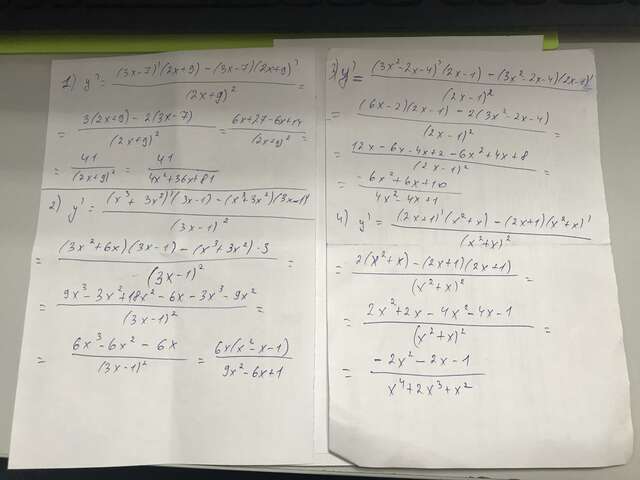 1) y' = ((3x-7)'(2x+9) - (3x-7)(2x+9)')/(2x+9)² =
= (3(2x+9) - 2(3x-7))/(2x+9)² = (6x+27-6x+14)/(2x+9)² =
= 41/(2x+9)² = 41/(4x²+36x+81)
2) y' = ((x³+3x²)'(3x-1) - (x³+3x²)(3x-1)')/(3x-1)²
= ((3x²+6x)(3x-1) - (x³+3x²)·3)/(3x-1)² =
= (9x³-3x²+18x²-6x-3x³-9x²)/(3x-1)² =
= (6x³-6x²-6x)/(3x-1)² = 6x(x²-x-1)/(9x²-6x+1)
3) y' = ((3x²-2x-4)'(2x-1) - (3x²-2x-4)(2x-1)')/(2x-1)² =
= ((6x-2)(2x-1) - 2(3x²-2x-4))/(2x-1)² =
= (12x-6x-4x+2-6x²+4x+8)/(2x-1)² =
= (-6x²+6x+10)/(4x²-4x+1)
4) y' = ((2x+1)'(x²+x) - (2x+1)(x²+x)')/(x²+x)² =
= (2(x²+x) - (2x+1)(2x+1))/(x²+x)² =
= (2x²+2x-4x²-4x-1)/(x²+x)² =
= (-2x²-2x-1)/(x⁴+2x³+x²)